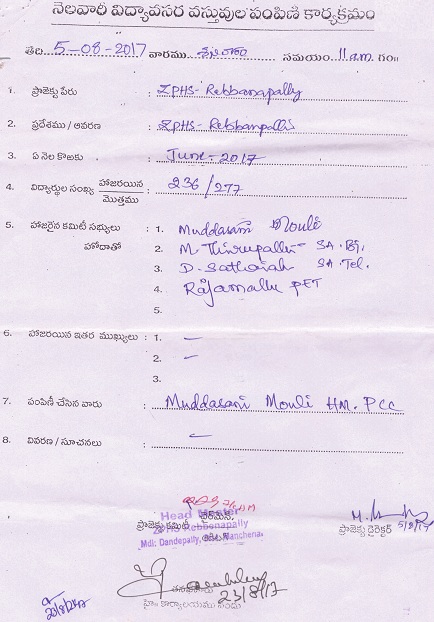 నెలవారీ విద్యావసర వస్తువుల పంపిణీ కార్యక్రమం
తేది 5-08-2017 వారము శనివారం సమయం 11 a.m. గం॥
1. ప్రాజెక్టు పేరు : ZPHS- Rebbanapally
2. ప్రదేశము / ఆవరణ : ZPHS- Rebbanpally
3. ఏ నెల కొఱకు : June- 2017
4. విద్యార్థుల సంఖ్య హాజరయిన / మొత్తము : 236/277
5. హాజరైన కమిటీ సభ్యులు : 1. Muddasani Mouli
హోదాతో 2. M. Thirupallu- SA
3. D. Sathaiah SA Tel.
4. Rajamallu PET
5.
6. హాజరయిన ఇతర ముఖ్యులు : 1. —
2. —
3.
7. పంపిణీ చేసిన వారు : Muddasani Mouli HM. PCC
8. వివరణ / సూచనలు : —
Head Master
ఛైర్మెన్,
ప్రాజెక్టు కమిటీ
ZPHS Rebbenapally
Mdl: Dandepally, Mancherial
ప్రాజెక్టు డైరెక్టర్ 5/8/17
23/8/17
హెం కార్యాలయము
20/8/2017